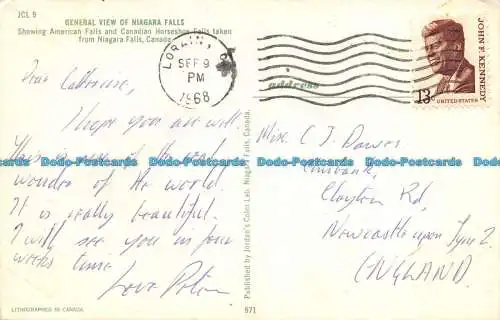 JCL 9
GENERAL VIEW OF NIAGARA FALLS
Showing American Falls and Canadian Horseshoe Falls taken
from Niagara Falls, Canada
LORAIN,
SEP 9
PM
1968
address
JOHN F. KENNEDY
13c
UNITED STATES
Dear Catherine,
I hope you are well.
This is one of the
wonder of the world.
It is really beautiful.
I will see you in four
weeks time
Love
Miss C J Dawes
Clayton Rd,
Newcastle upon Tyne 2.
ENGLAND.
Published by Jordan's Color Lab. Niagara Falls, Canada.
LITHOGRAPHED IN CANADA
971
Dodo-Postcards Dodo-Postcards Dodo-Postcards Dodo-Postcards